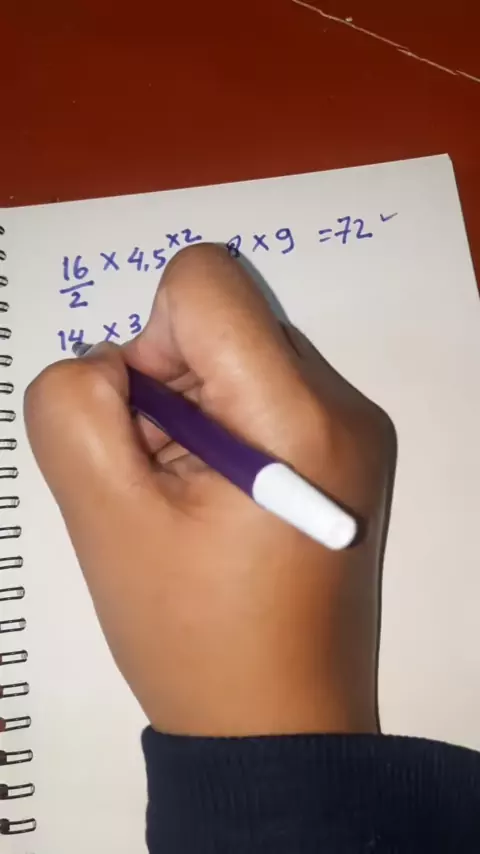 16/2 × 4.5 ×2 8 × 9 = 72 ✓
14 × 3